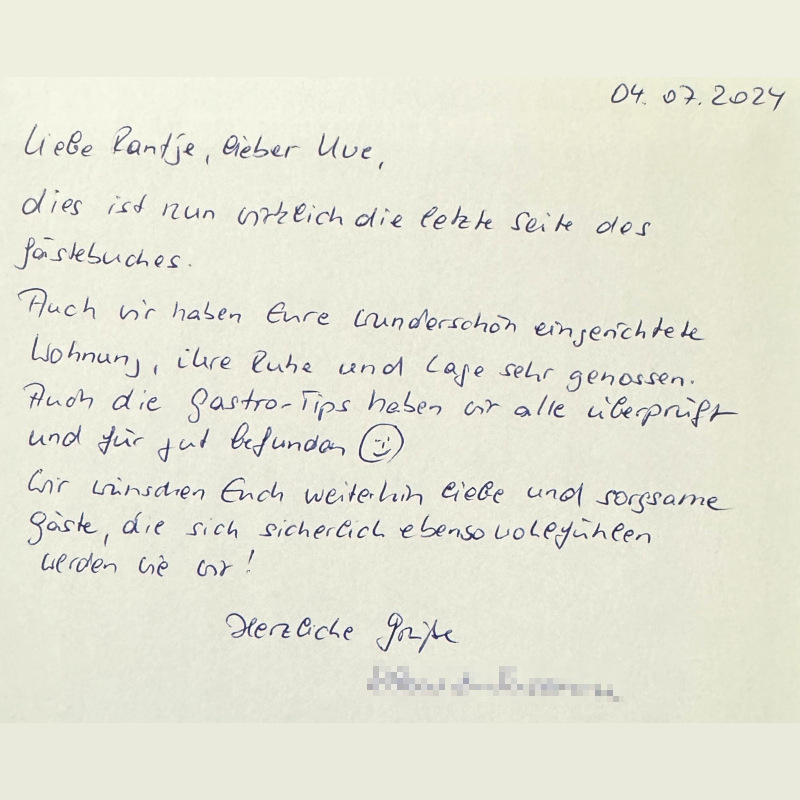 04.07.2024
Liebe Rantje, lieber Uwe,
dies ist nun wirklich die letzte Seite des
Gästebuches.
Auch wir haben Eure wunderschön eingerichtete
Wohnung, ihre Ruhe und Lage sehr genossen.
Auch die Gastro-Tips haben wir alle überprüft
und für gut befunden ☺
Wir wünschen Euch weiterhin liebe und sorgsame
Gäste, die sich sicherlich ebenso wohlfühlen
werden wie wir!
Herzliche Grüße